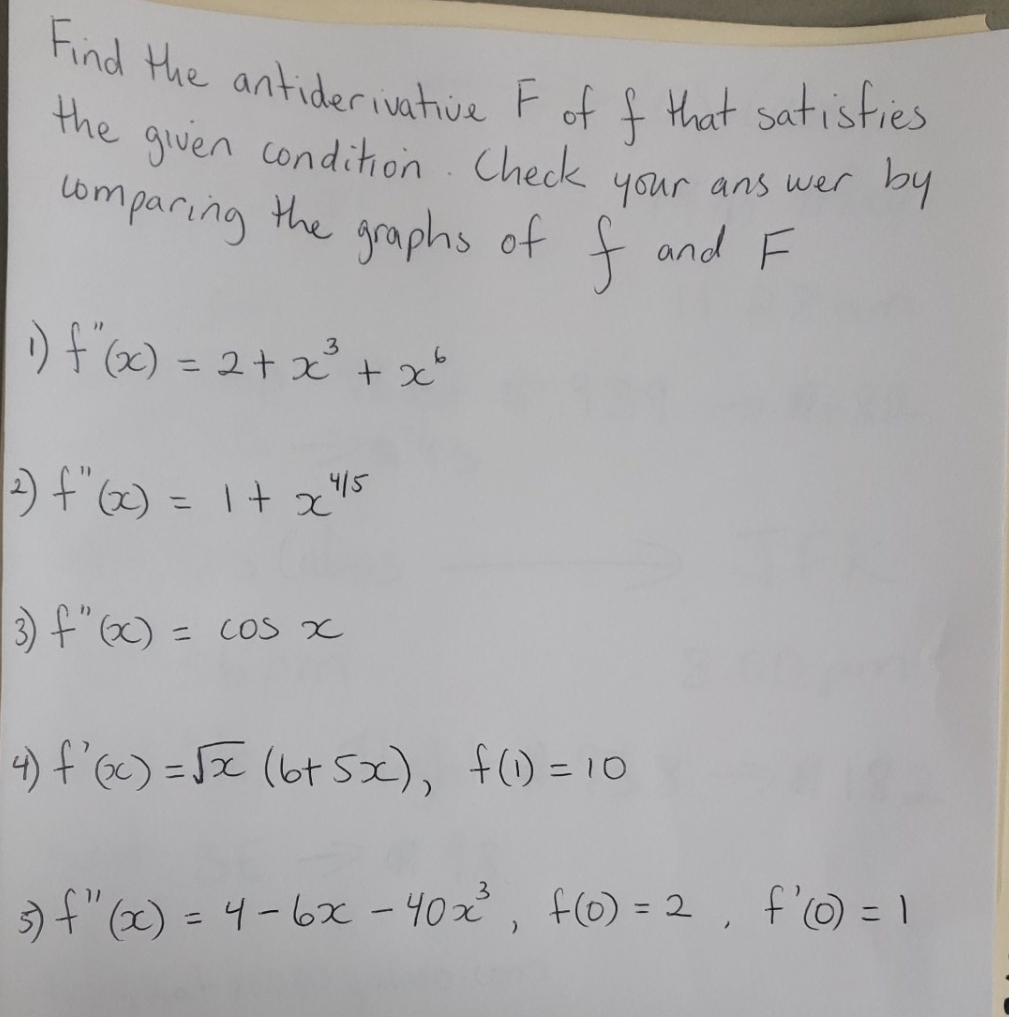 Find the antiderivative F of f that satisfies
the given condition. Check your answer by
comparing the graphs of f and F
1) f"(x) = 2 + x³ + x⁶
2) f"(x) = 1 + x^4/5
3) f"(x) = cos x
4) f'(x) = √x (6+5x), f(1) = 10
5) f"(x) = 4 - 6x - 40x³, f(0) = 2, f'(0) = 1